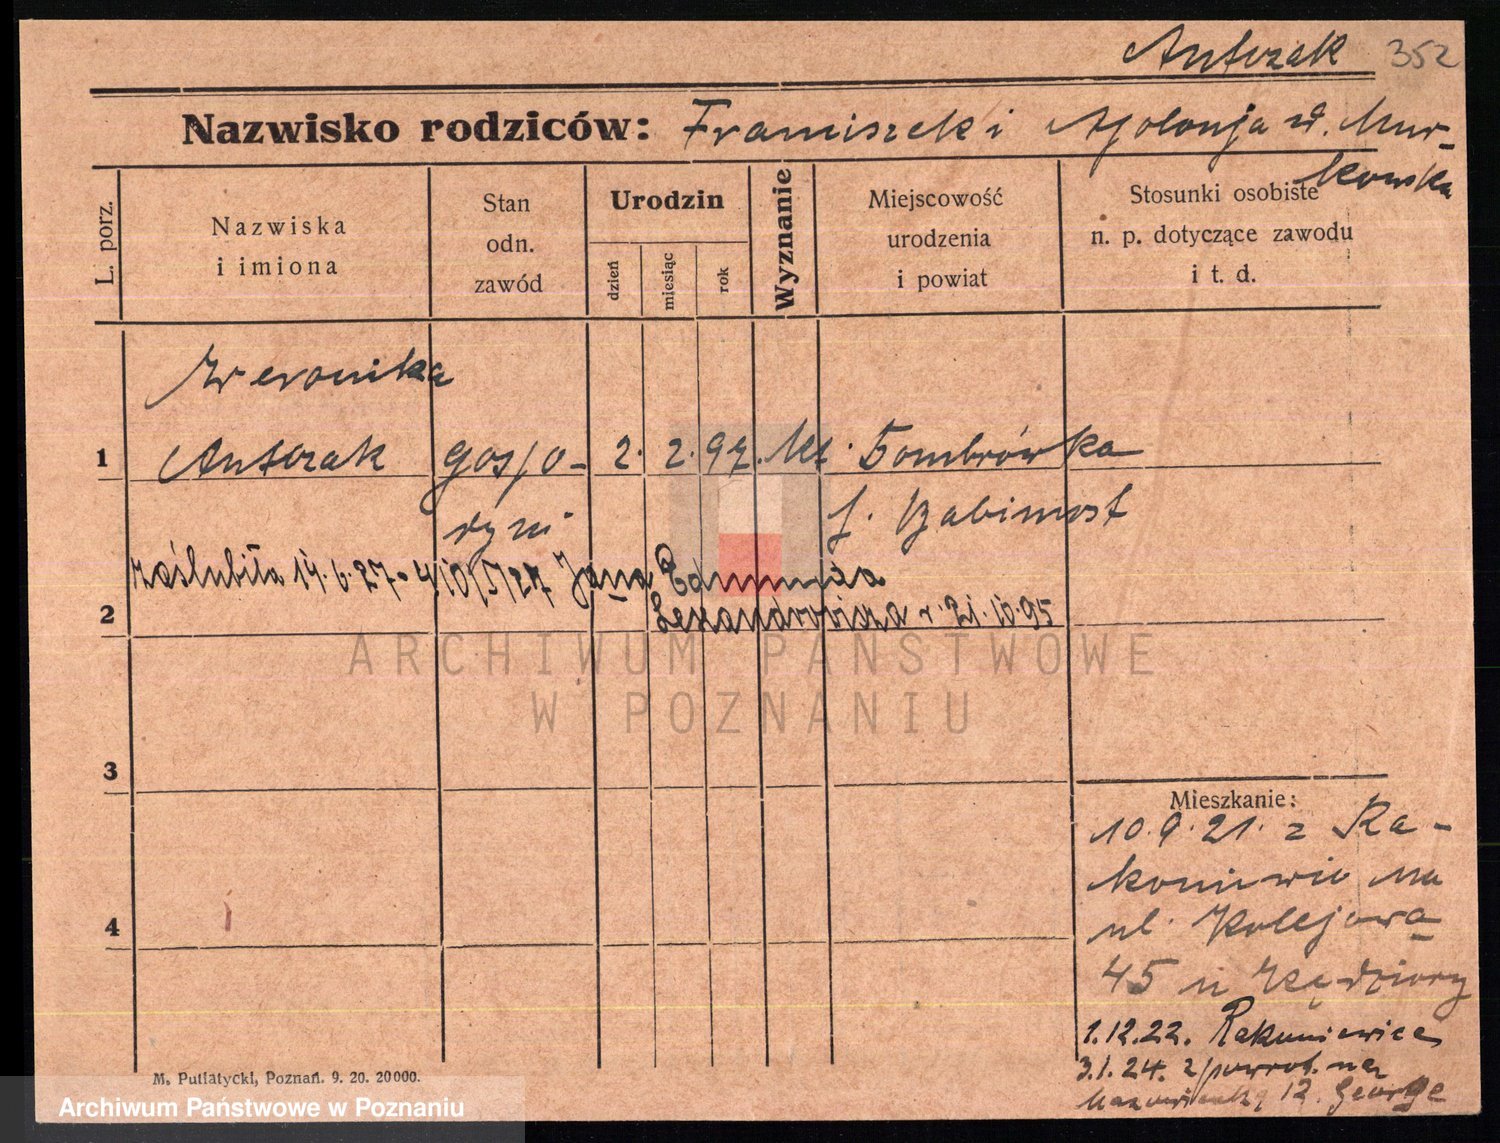 Antczak 352
Nazwisko rodziców: Franciszek i Apolonja zd. Mur-
kowska
L. porz.
Nazwiska
i imiona
Stan
odn.
zawód
Urodzin
dzień
miesiąc
rok
Wyznanie
Miejscowość
urodzenia
i powiat
Stosunki osobiste
n. p. dotyczące zawodu
i t. d.
Weronika
1 Antczak gospo- 2. 2. 97. kt. Dombrówka
dyni p. Babimost
zaślubiła 14.6.27. 410/I/27 Jana Edmunda
2 Lexandrowicza r. 21.10.95
3
4
Mieszkanie:
10.9.21. z Ra-
koniewic na
ul. Kolejowa
45 u Kędziory
1.12.22. Rakoniewice
3.1.24. z powrot. na
12. George
M. Putiatycki, Poznań. 9. 20. 20000.
ARCHIWUM PAŃSTWOWE
W POZNANIU
Archiwum Państwowe w Poznaniu